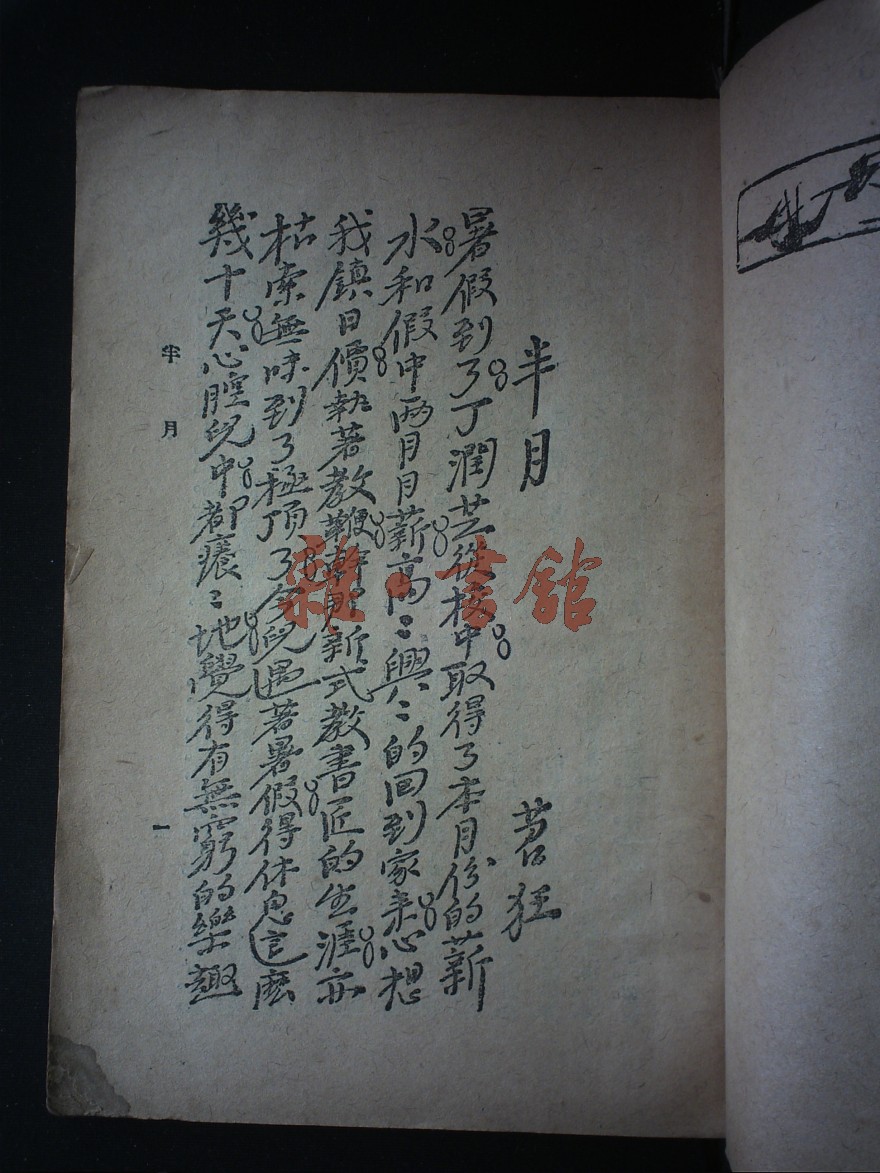 半月
苕狂
暑假到了丁潤芝從校中取得了本月份的薪
水和假中兩月月薪高〻興〻的回到家來心想
我鎮日價執著教鞭幹那新式教書匠的生涯亦
枯索無味到了極頂了今兒遇著暑假得休息這麽
幾十天心腔兒中都癢〻地覺得有無窮的樂趣
半月
一
雜·書館